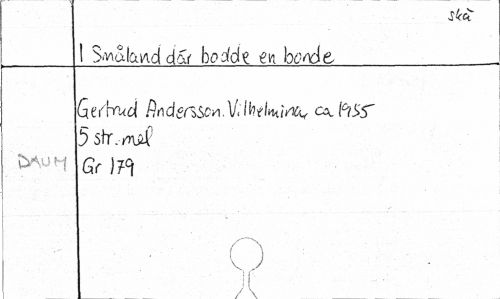 skä
I Småland där bodde en bonde
Gertrud Andersson. Vilhelmina, ca 1955
5 str. mel
DAUM Gr 179